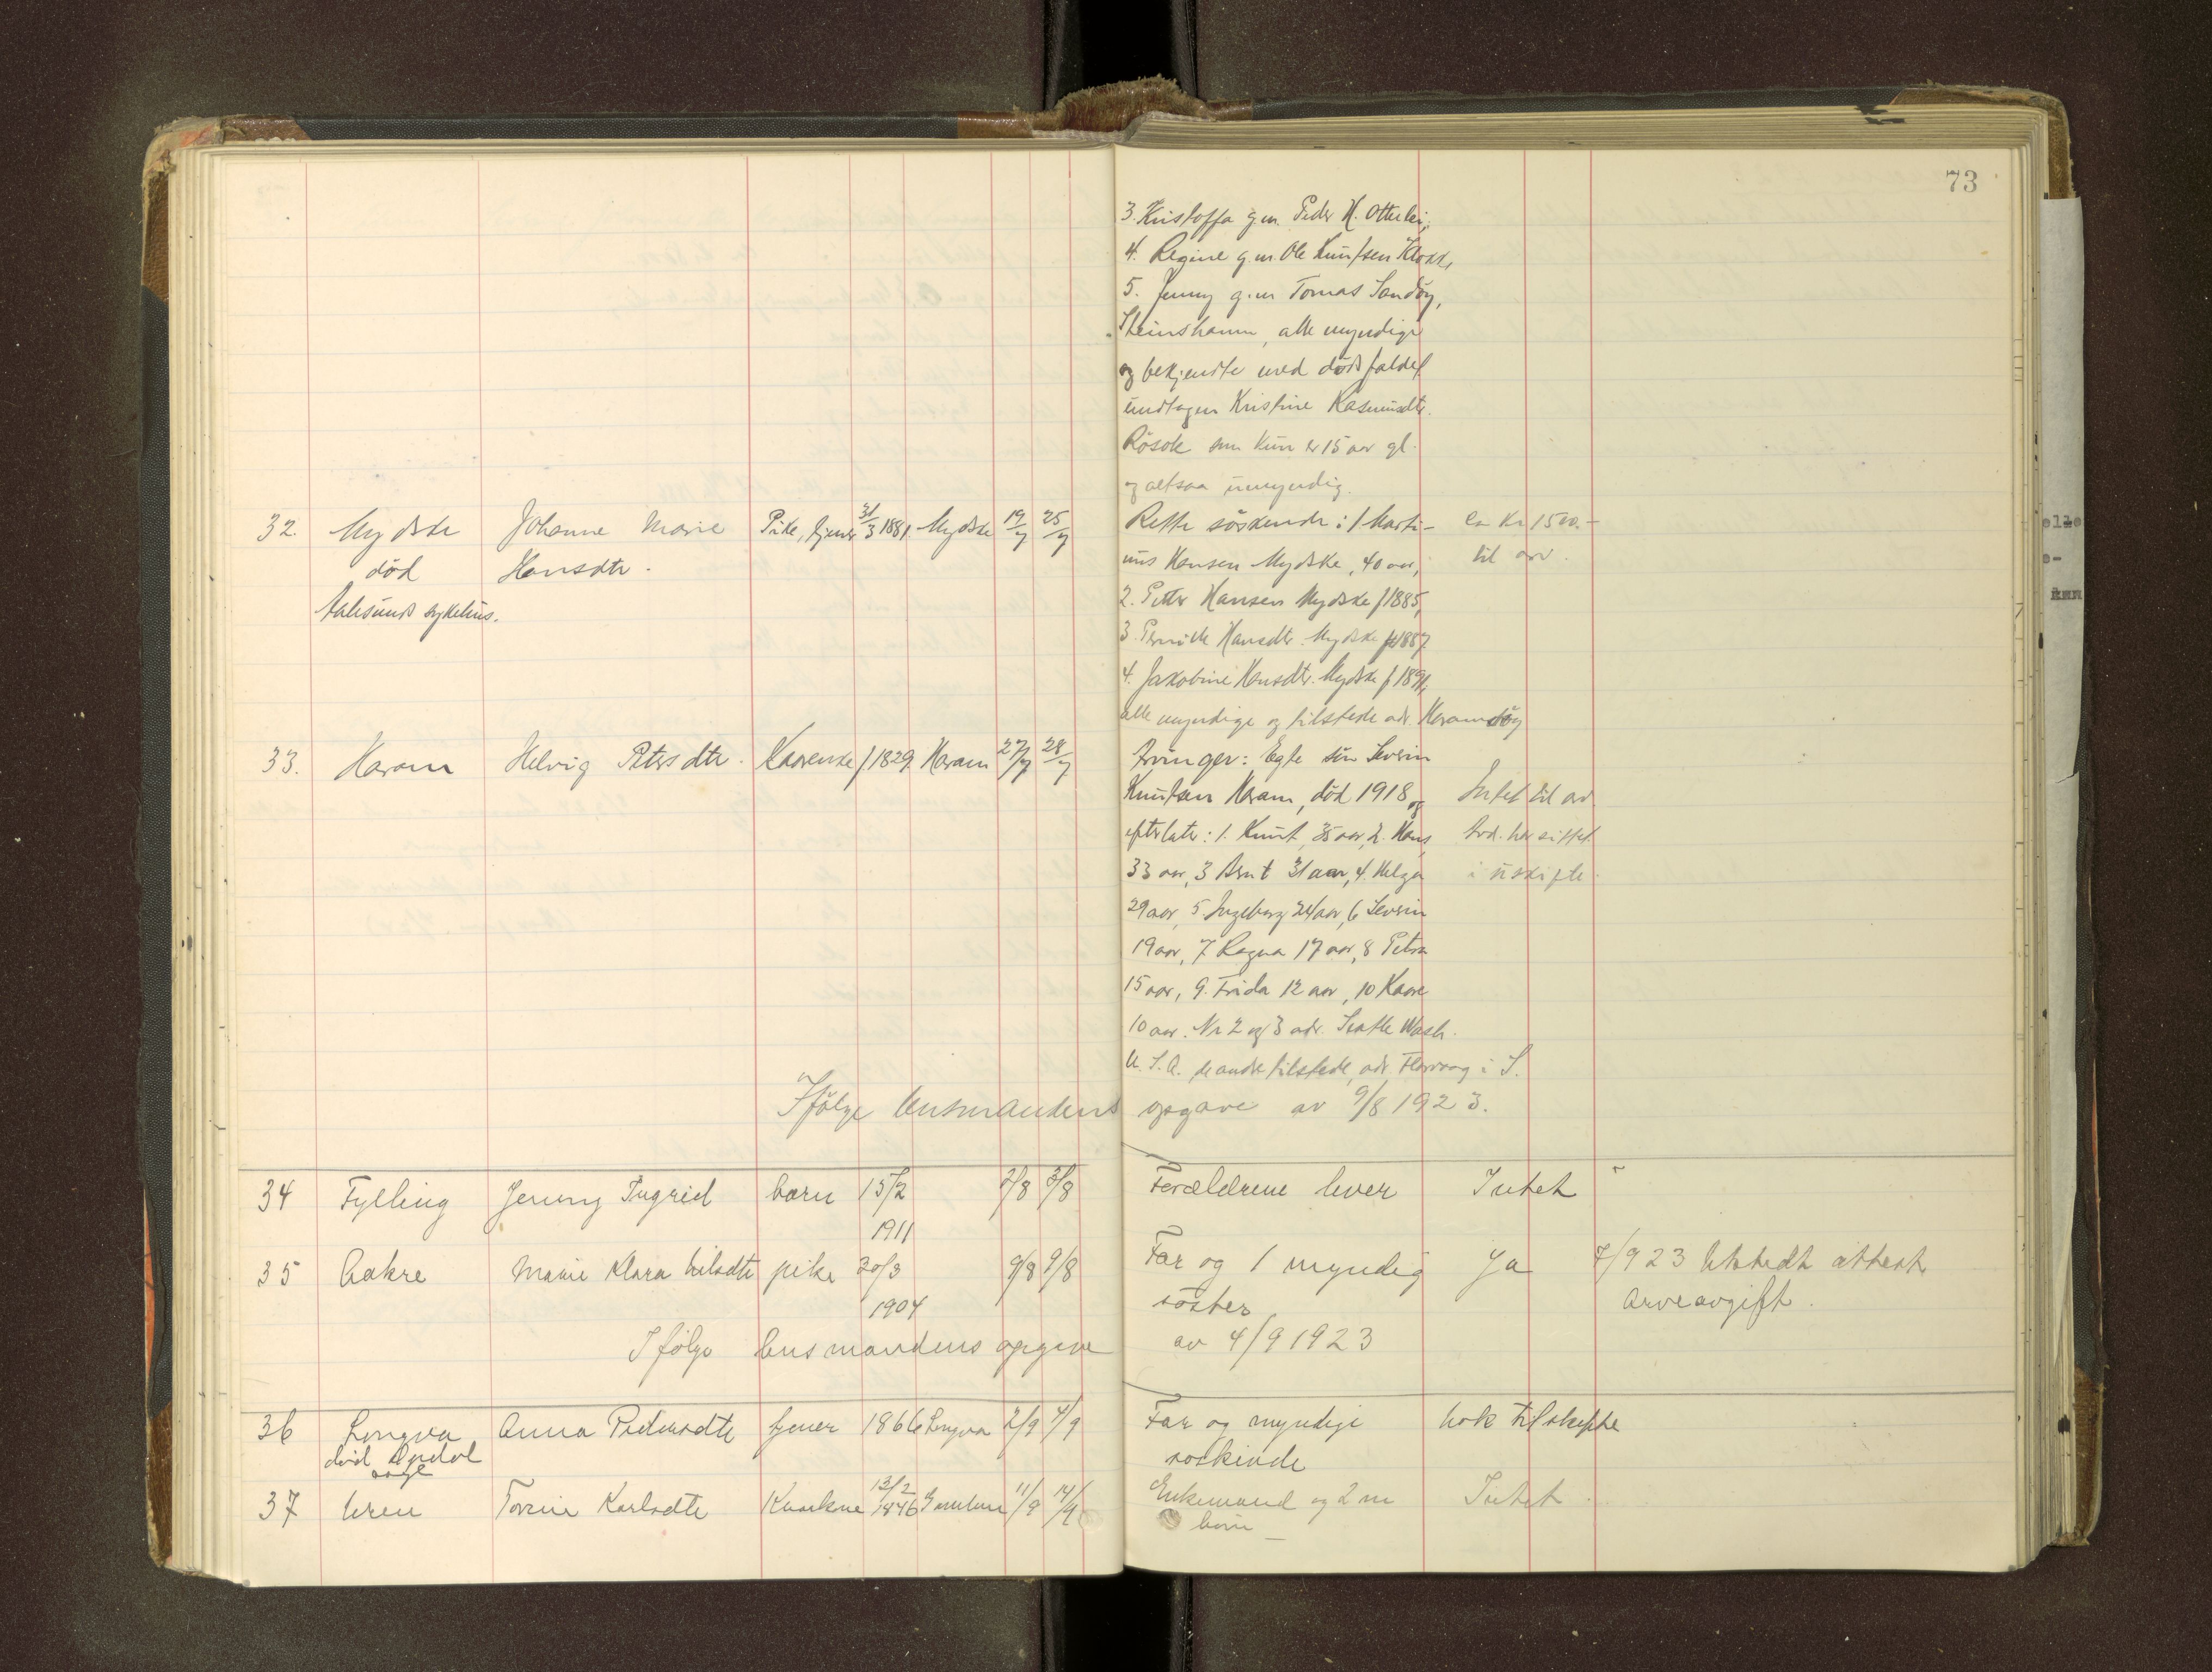 73
3. Kristoffa g.m. Peder H. Otterlei,
4. Regine g.m. Ole Knutsen Klokk,
5. Jenny g.m Tomas Sandöy,
Steinshamn, alle myndige
og bekjendte med dödsfaldet
undtagen Kristine Rasmusdtr.
Rösok som kun er 15 aar gl.
og altsaa umyndig.
32. Mydske Johanne Marie Pike, tjener 31/3 1881. Mydske 19/7 25/7 Rette söskende: 1 Marti- ca Kr 1500.-
död Hansdtr. nus Hansen Mydske, 40 aar, til arv.
Aalesunds sykehus. 2. Petter Hansen Mydske f 1885,
3. Pernille Hansdtr. Mydske f 1887
4. Jakobine Hansdtr. Mydske f 1891,
alle myndige og tilstede adr. Haramsöy
33. Haram Helvig Petersdtr. Kaarenke f 1829 Haram 27/7 28/7 Arvinger: Egte sön Severin
Knutsen Haram, död 1918 og Intet til arv
efterlater: 1. Knut, 35 aar, 2. Hans, Avd. har sittet
33 aar, 3 Bernt 31 aar, 4. Helga i uskifte.
29 aar, 5 Ingeborg 24 aar, 6 Severin
19 aar, 7 Ragna 17 aar, 8 Petra
15 aar, 9. Frida 12 aar, 10 Kaare
10 aar. Nr 2 og 3 adr. Seattle Wash.
U.S.A. de andre tilstede, adr. Flarvaag i S.
Ifölge lensmandens opgave av 9/8 1923.
34 Fylling Jenny Ingrid barn 15/2 2/8 3/8 Forældrene lever Intet
1911
35 Aakre Marie Klara Nilsdtr pike 20/3 9/8 9/8 Far og 1 myndig Ja 7/9 23 Utstedt attest
1904 söster arveavgift.
Ifölge lensmandens opgave av 4/9 1923
36 Longva Anna Pedersdtr tjener 1866 Longva 2/9 4/9 Far og myndige nok til skifte
död Opdöl söskende
37 Uren Torine Karlsdtr Kaarkone 13/2 1846 11/9 14/9 Enkemand og 2 m Intet
barn